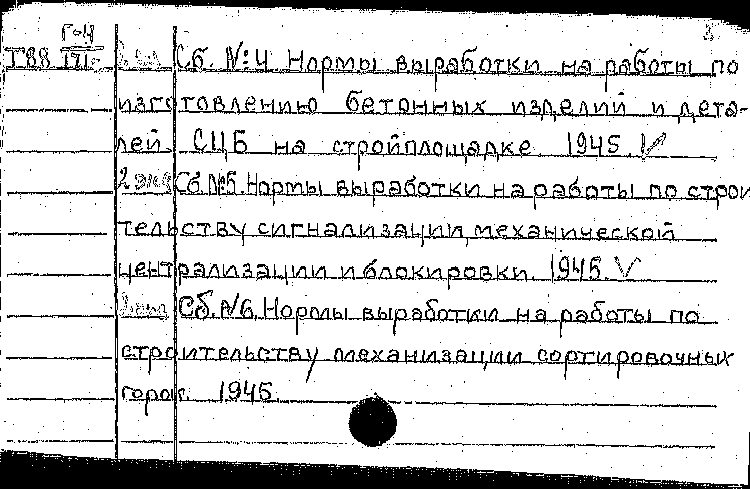 Т88 Сб. №4 Нормы выработки на работы по
изготовлению бетонных изделий и дета-
лей СЦБ на стройплощадке 1945.
2 экз Сб. №5. Нормы выработки на работы по строи
тельству сигнализации, механической
централизации и блокировки. 1945.
Сб. №6. Нормы выработки на работы по
строительству механизации сортировочных
горок. 1945.